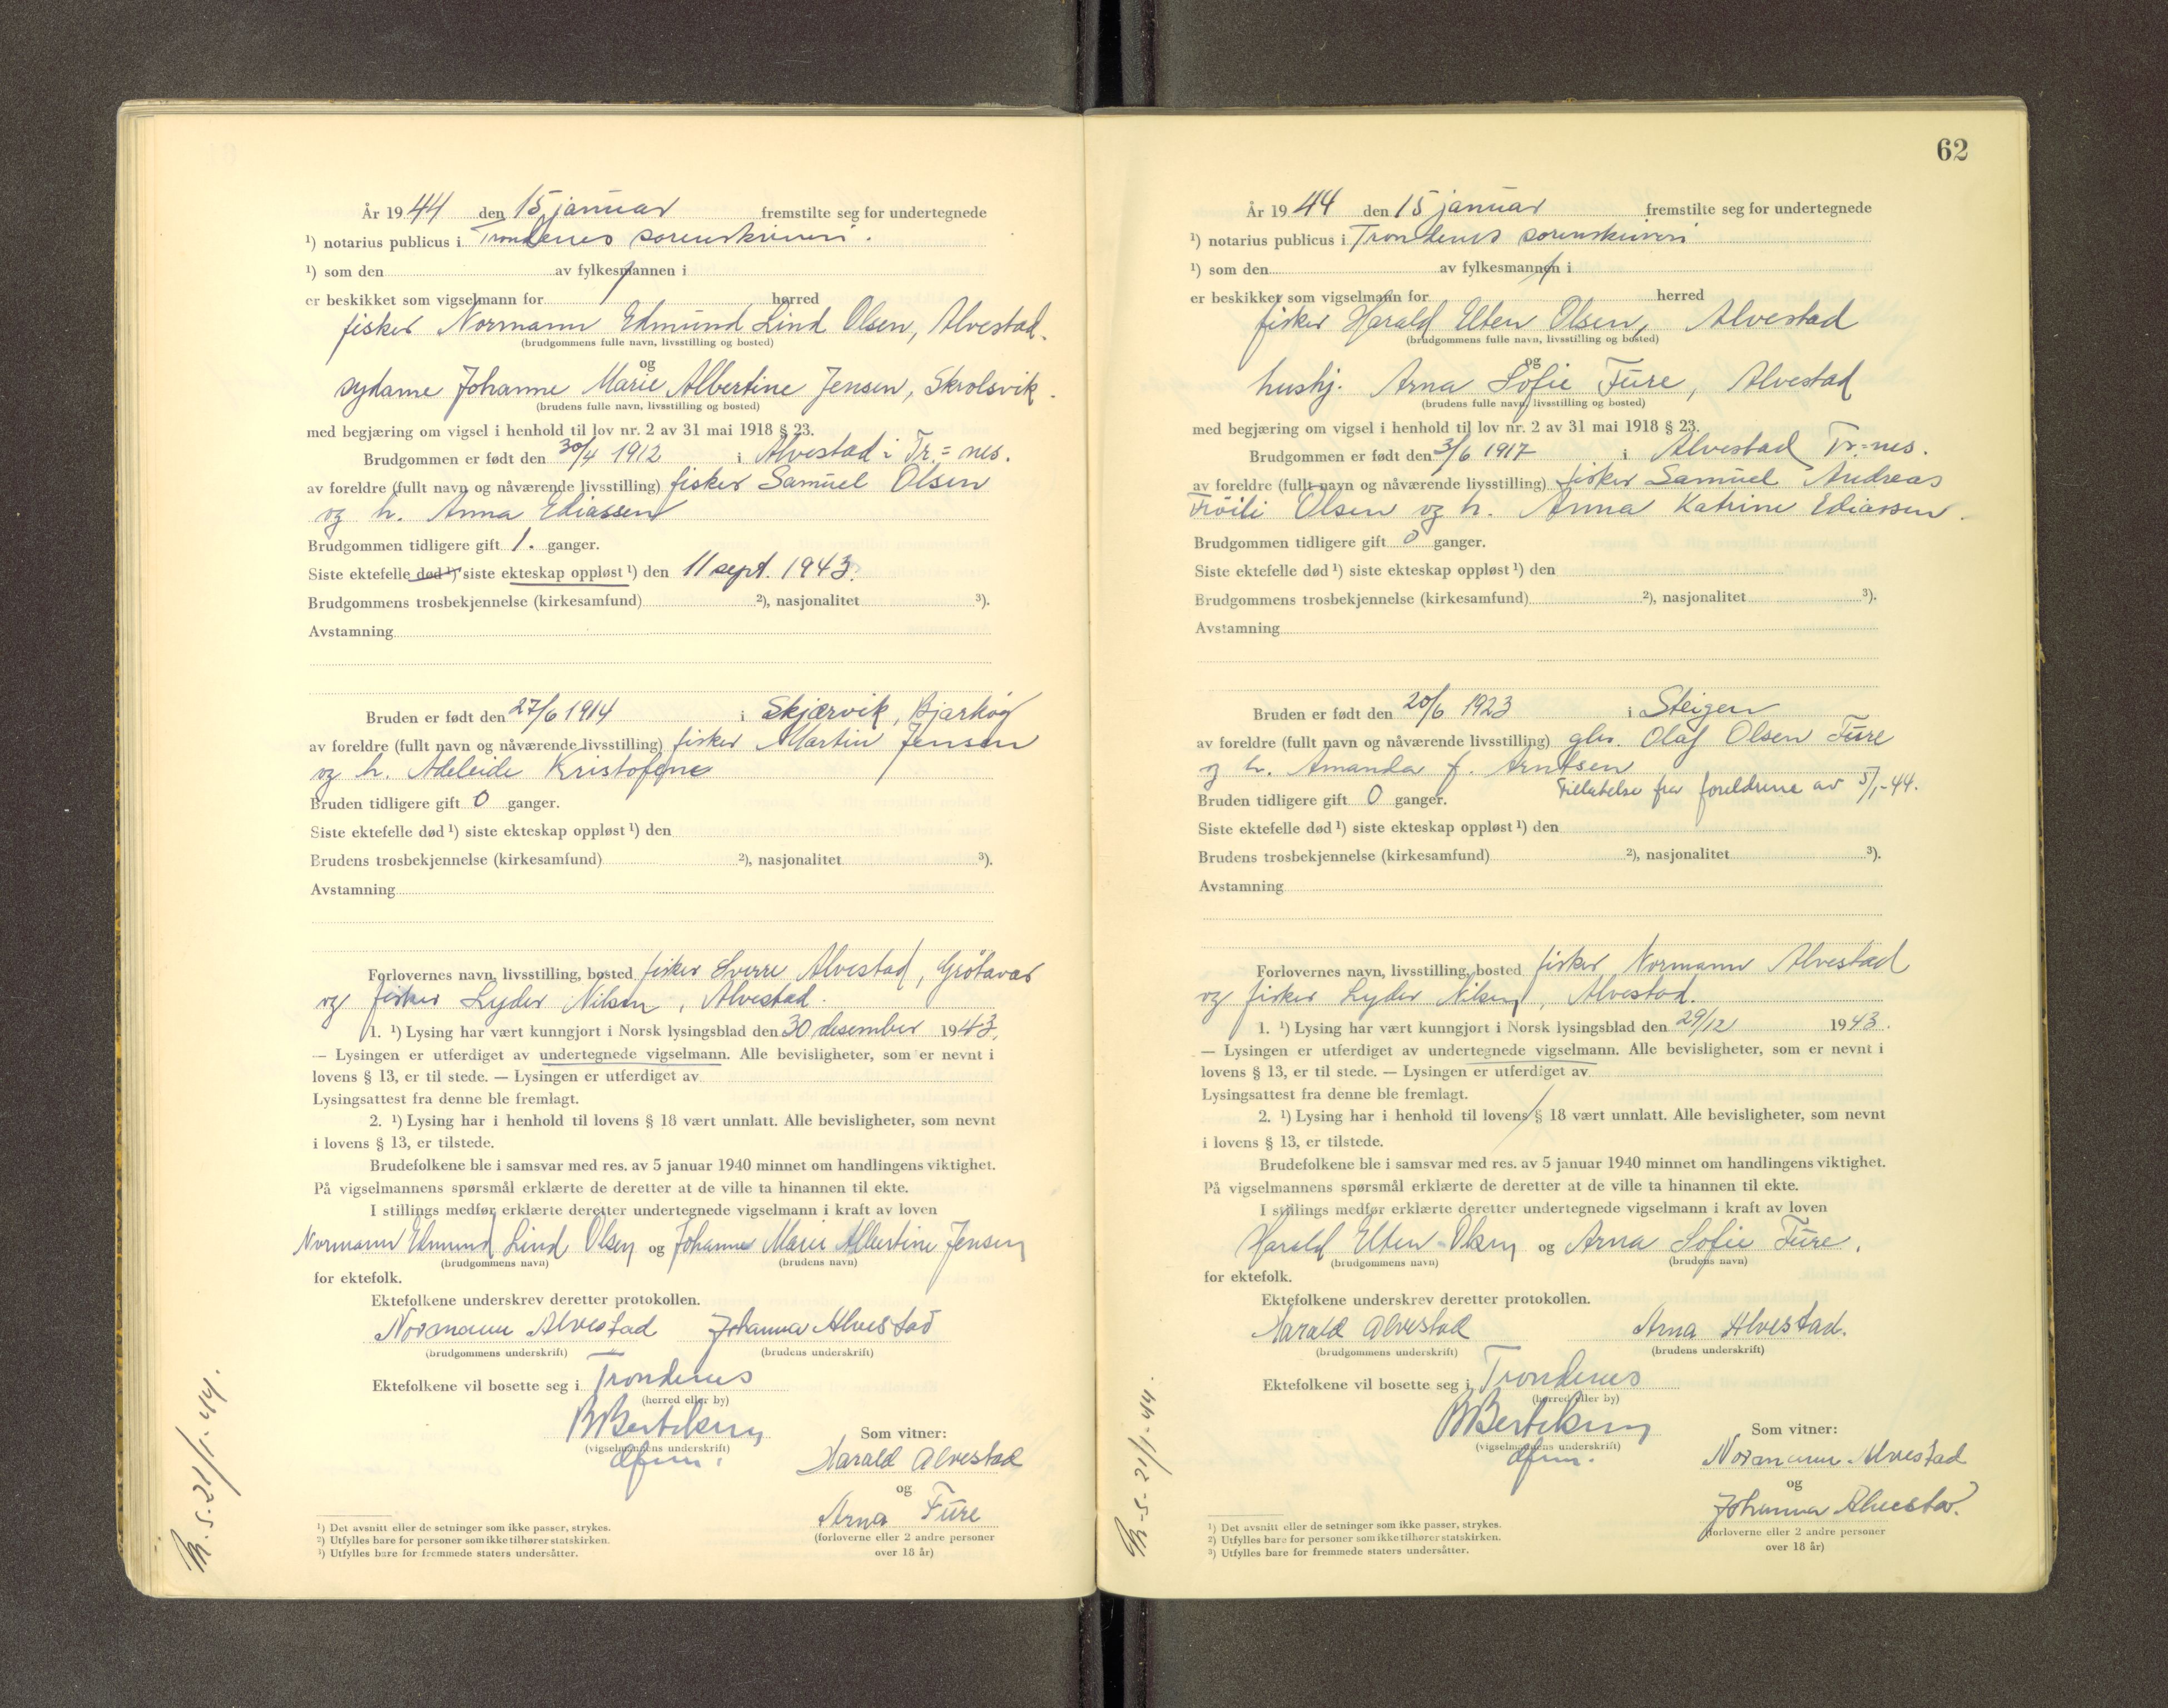 År 1944 den 15 januar fremstilte seg for undertegnede
¹) notarius publicus i Trondenes sorenskriveri.
¹) som den av fylkesmannen i
er beskikket som vigselmann for herred
fisker Normann Edmund Lind Olsen, Alvestad.
(brudgommens fulle navn, livsstilling og bosted)
og
sydame Johanne Marie Albertine Jensen, Skrolsvik.
(brudens fulle navn, livsstilling og bosted)
med begjæring om vigsel i henhold til lov nr. 2 av 31 mai 1918 § 23.
Brudgommen er født den 30/4 1912 i Alvestad i Tr.=nes.
av foreldre (fullt navn og nåværende livsstilling) fisker Samuel Olsen
og h. Anna Ediassen
Brudgommen tidligere gift 1. ganger.
Siste ektefelle død ¹) siste ekteskap oppløst ¹) den 11 sept. 1943.
Brudgommens trosbekjennelse (kirkesamfund) ²), nasjonalitet ³).
Avstamning
Bruden er født den 27/6 1914 i Skjærvik, Bjarkøy
av foreldre (fullt navn og nåværende livsstilling) fisker Martin Jensen
og h. Adeleide
Bruden tidligere gift 0 ganger.
Siste ektefelle død ¹) siste ekteskap oppløst ¹) den
Brudens trosbekjennelse (kirkesamfund) ²), nasjonalitet ³).
Avstamning
Forlovernes navn, livsstilling, bosted fisker Sverre Alvestad, Grötavær
og fisker Lyder Nilsen, Alvestad.
1. ¹) Lysing har vært kunngjort i Norsk lysingsblad den 30 desember 1943.
— Lysingen er utferdiget av undertegnede vigselmann. Alle bevisligheter, som er nevnt i
lovens § 13, er til stede. — Lysingen er utferdiget av
Lysingsattest fra denne ble fremlagt.
2. ¹) Lysing har i henhold til lovens § 18 vært unnlatt. Alle bevisligheter, som nevnt
i lovens § 13, er tilstede.
Brudefolkene ble i samsvar med res. av 5 januar 1940 minnet om handlingens viktighet.
På vigselmannens spørsmål erklærte de deretter at de ville ta hinannen til ekte.
I stillings medfør erklærte deretter undertegnede vigselmann i kraft av loven
Normann Edmund Lind Olsen og Johanne Marie Albertine Jensen
(brudgommens navn) (brudens navn)
for ektefolk.
Ektefolkene underskrev deretter protokollen.
Normann Alvestad Johanna Alvestad
(brudgommens underskrift) (brudens underskrift)
Ektefolkene vil bosette seg i Trondenes
(herred eller by)
B Bertelsen
(vigselmannens underskrift)
Som vitner:
Harald Alvestad
og
Arna Fure
(forloverne eller 2 andre personer
over 18 år)
¹) Det avsnitt eller de setninger som ikke passer, strykes.
²) Utfylles bare for personer som ikke tilhører statskirken.
³) Utfylles bare for fremmede staters undersåtter.
21/1-44.
62
År 1944 den 15 januar fremstilte seg for undertegnede
¹) notarius publicus i Trondenes sorenskriveri
¹) som den av fylkesmannen i
er beskikket som vigselmann for herred
fisker Harald Elten Olsen, Alvestad
(brudgommens fulle navn, livsstilling og bosted)
og
hushj. Arna Sofie Fure, Alvestad
(brudens fulle navn, livsstilling og bosted)
med begjæring om vigsel i henhold til lov nr. 2 av 31 mai 1918 § 23.
Brudgommen er født den 3/6 1917 i Alvestad Tr.=nes.
av foreldre (fullt navn og nåværende livsstilling) fisker Samuel Andreas
Fröili Olsen og h. Anna Katrine Ediassen.
Brudgommen tidligere gift 0 ganger.
Siste ektefelle død ¹) siste ekteskap oppløst ¹) den
Brudgommens trosbekjennelse (kirkesamfund) ²), nasjonalitet ³).
Avstamning
Bruden er født den 20/6 1923 i Steigen
av foreldre (fullt navn og nåværende livsstilling) gbr. Olaf Olsen Fure
og h. Amanda f. Arntsen
Tillatelse fra foreldrene av 5/1-44.
Bruden tidligere gift 0 ganger.
Siste ektefelle død ¹) siste ekteskap oppløst ¹) den
Brudens trosbekjennelse (kirkesamfund) ²), nasjonalitet ³).
Avstamning
Forlovernes navn, livsstilling, bosted fisker Normann Alvestad
og fisker Lyder Nilsen, Alvestad.
1. ¹) Lysing har vært kunngjort i Norsk lysingsblad den 29/12 1943.
— Lysingen er utferdiget av undertegnede vigselmann. Alle bevisligheter, som er nevnt i
lovens § 13, er til stede. — Lysingen er utferdiget av
Lysingsattest fra denne ble fremlagt.
2. ¹) Lysing har i henhold til lovens § 18 vært unnlatt. Alle bevisligheter, som nevnt
i lovens § 13, er tilstede.
Brudefolkene ble i samsvar med res. av 5 januar 1940 minnet om handlingens viktighet.
På vigselmannens spørsmål erklærte de deretter at de ville ta hinannen til ekte.
I stillings medfør erklærte deretter undertegnede vigselmann i kraft av loven
Harald Elten Olsen og Arna Sofie Fure.
(brudgommens navn) (brudens navn)
for ektefolk.
Ektefolkene underskrev deretter protokollen.
Harald Alvestad Arna Alvestad.
(brudgommens underskrift) (brudens underskrift)
Ektefolkene vil bosette seg i Trondenes
(herred eller by)
B Bertelsen
(vigselmannens underskrift)
Som vitner:
Normann Alvestad
og
Johanna Alvestad.
(forloverne eller 2 andre personer
over 18 år)
¹) Det avsnitt eller de setninger som ikke passer, strykes.
²) Utfylles bare for personer som ikke tilhører statskirken.
³) Utfylles bare for fremmede staters undersåtter.
21/1-44.